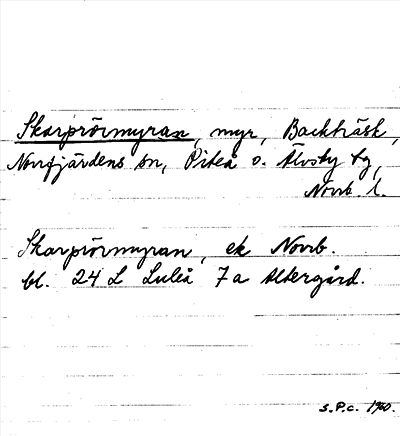 Skarprörmyran, myr, Backträsk,
Norrfjärdens sn, Piteå o. Älvsby tg,
Norrb. l.
Skarprörmyran, ek Norrb.
bl. 24 L Luleå 7a Altergård.
S.P.C. 1960.